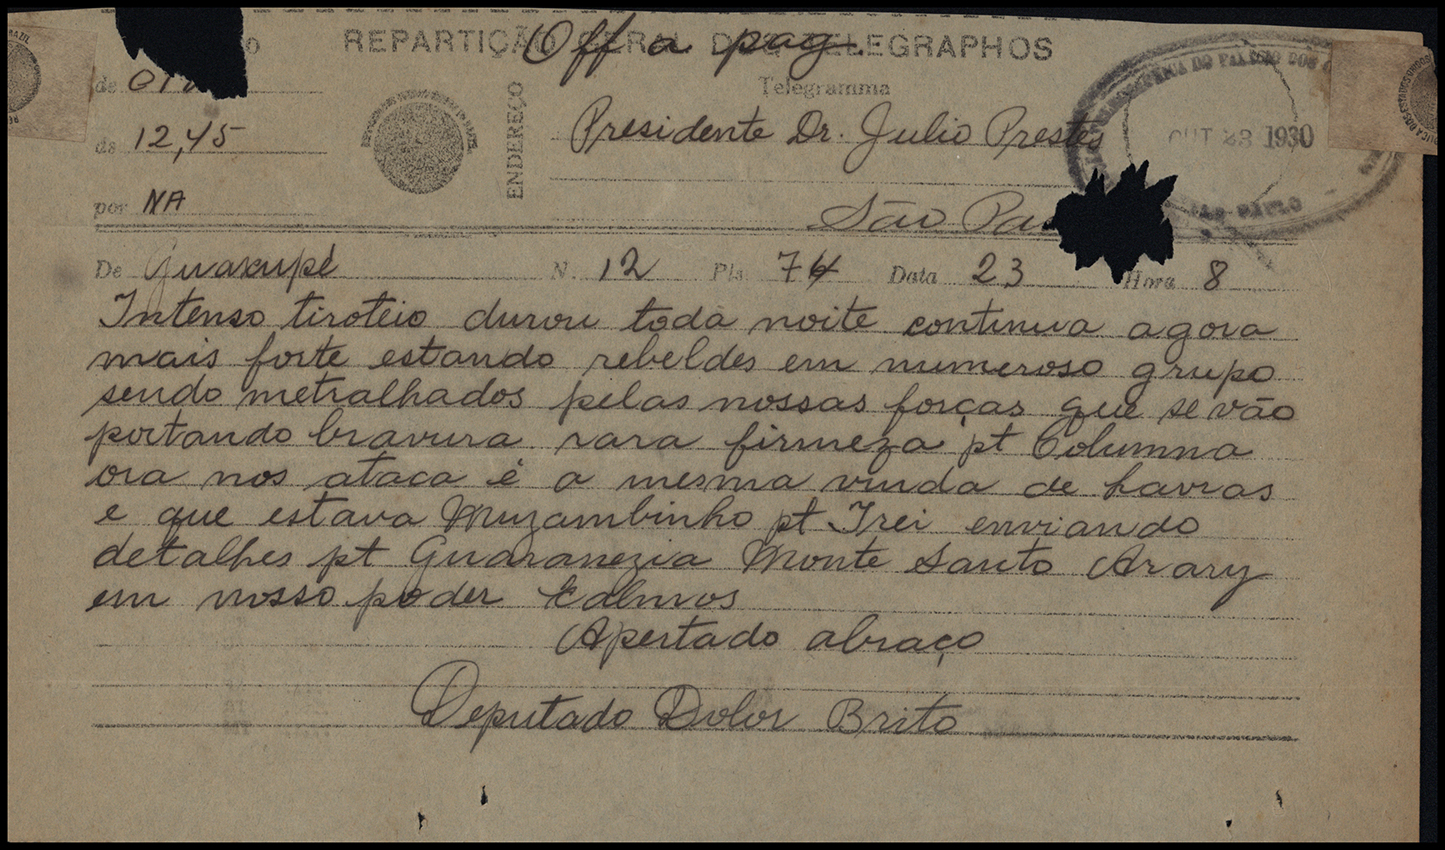 REPARTIÇÃO GERAL DOS TELEGRAPHOS
Off a pag.
Telegramma
de
ds 12,45
por NA
ENDEREÇO
Presidente Dr. Julio Prestes
São Pau
OUT 23 1930
SÃO PAULO
De Guaxupé N. 12 Pls 74 Data 23 Hora 8
Intenso tiroteio durou toda noite continua agora
mais forte estando rebeldes em numeroso grupo
sendo metralhados pelas nossas forças que se vão
portando bravura rara firmeza pt Columna
ora nos ataca é a mesma vinda de Lavras
e que estava Muzambinho pt Irei enviando
detalhes pt Guaranezia Monte Santo Arary
em nosso poder
Apertado abraço
Deputado Dolor Brito